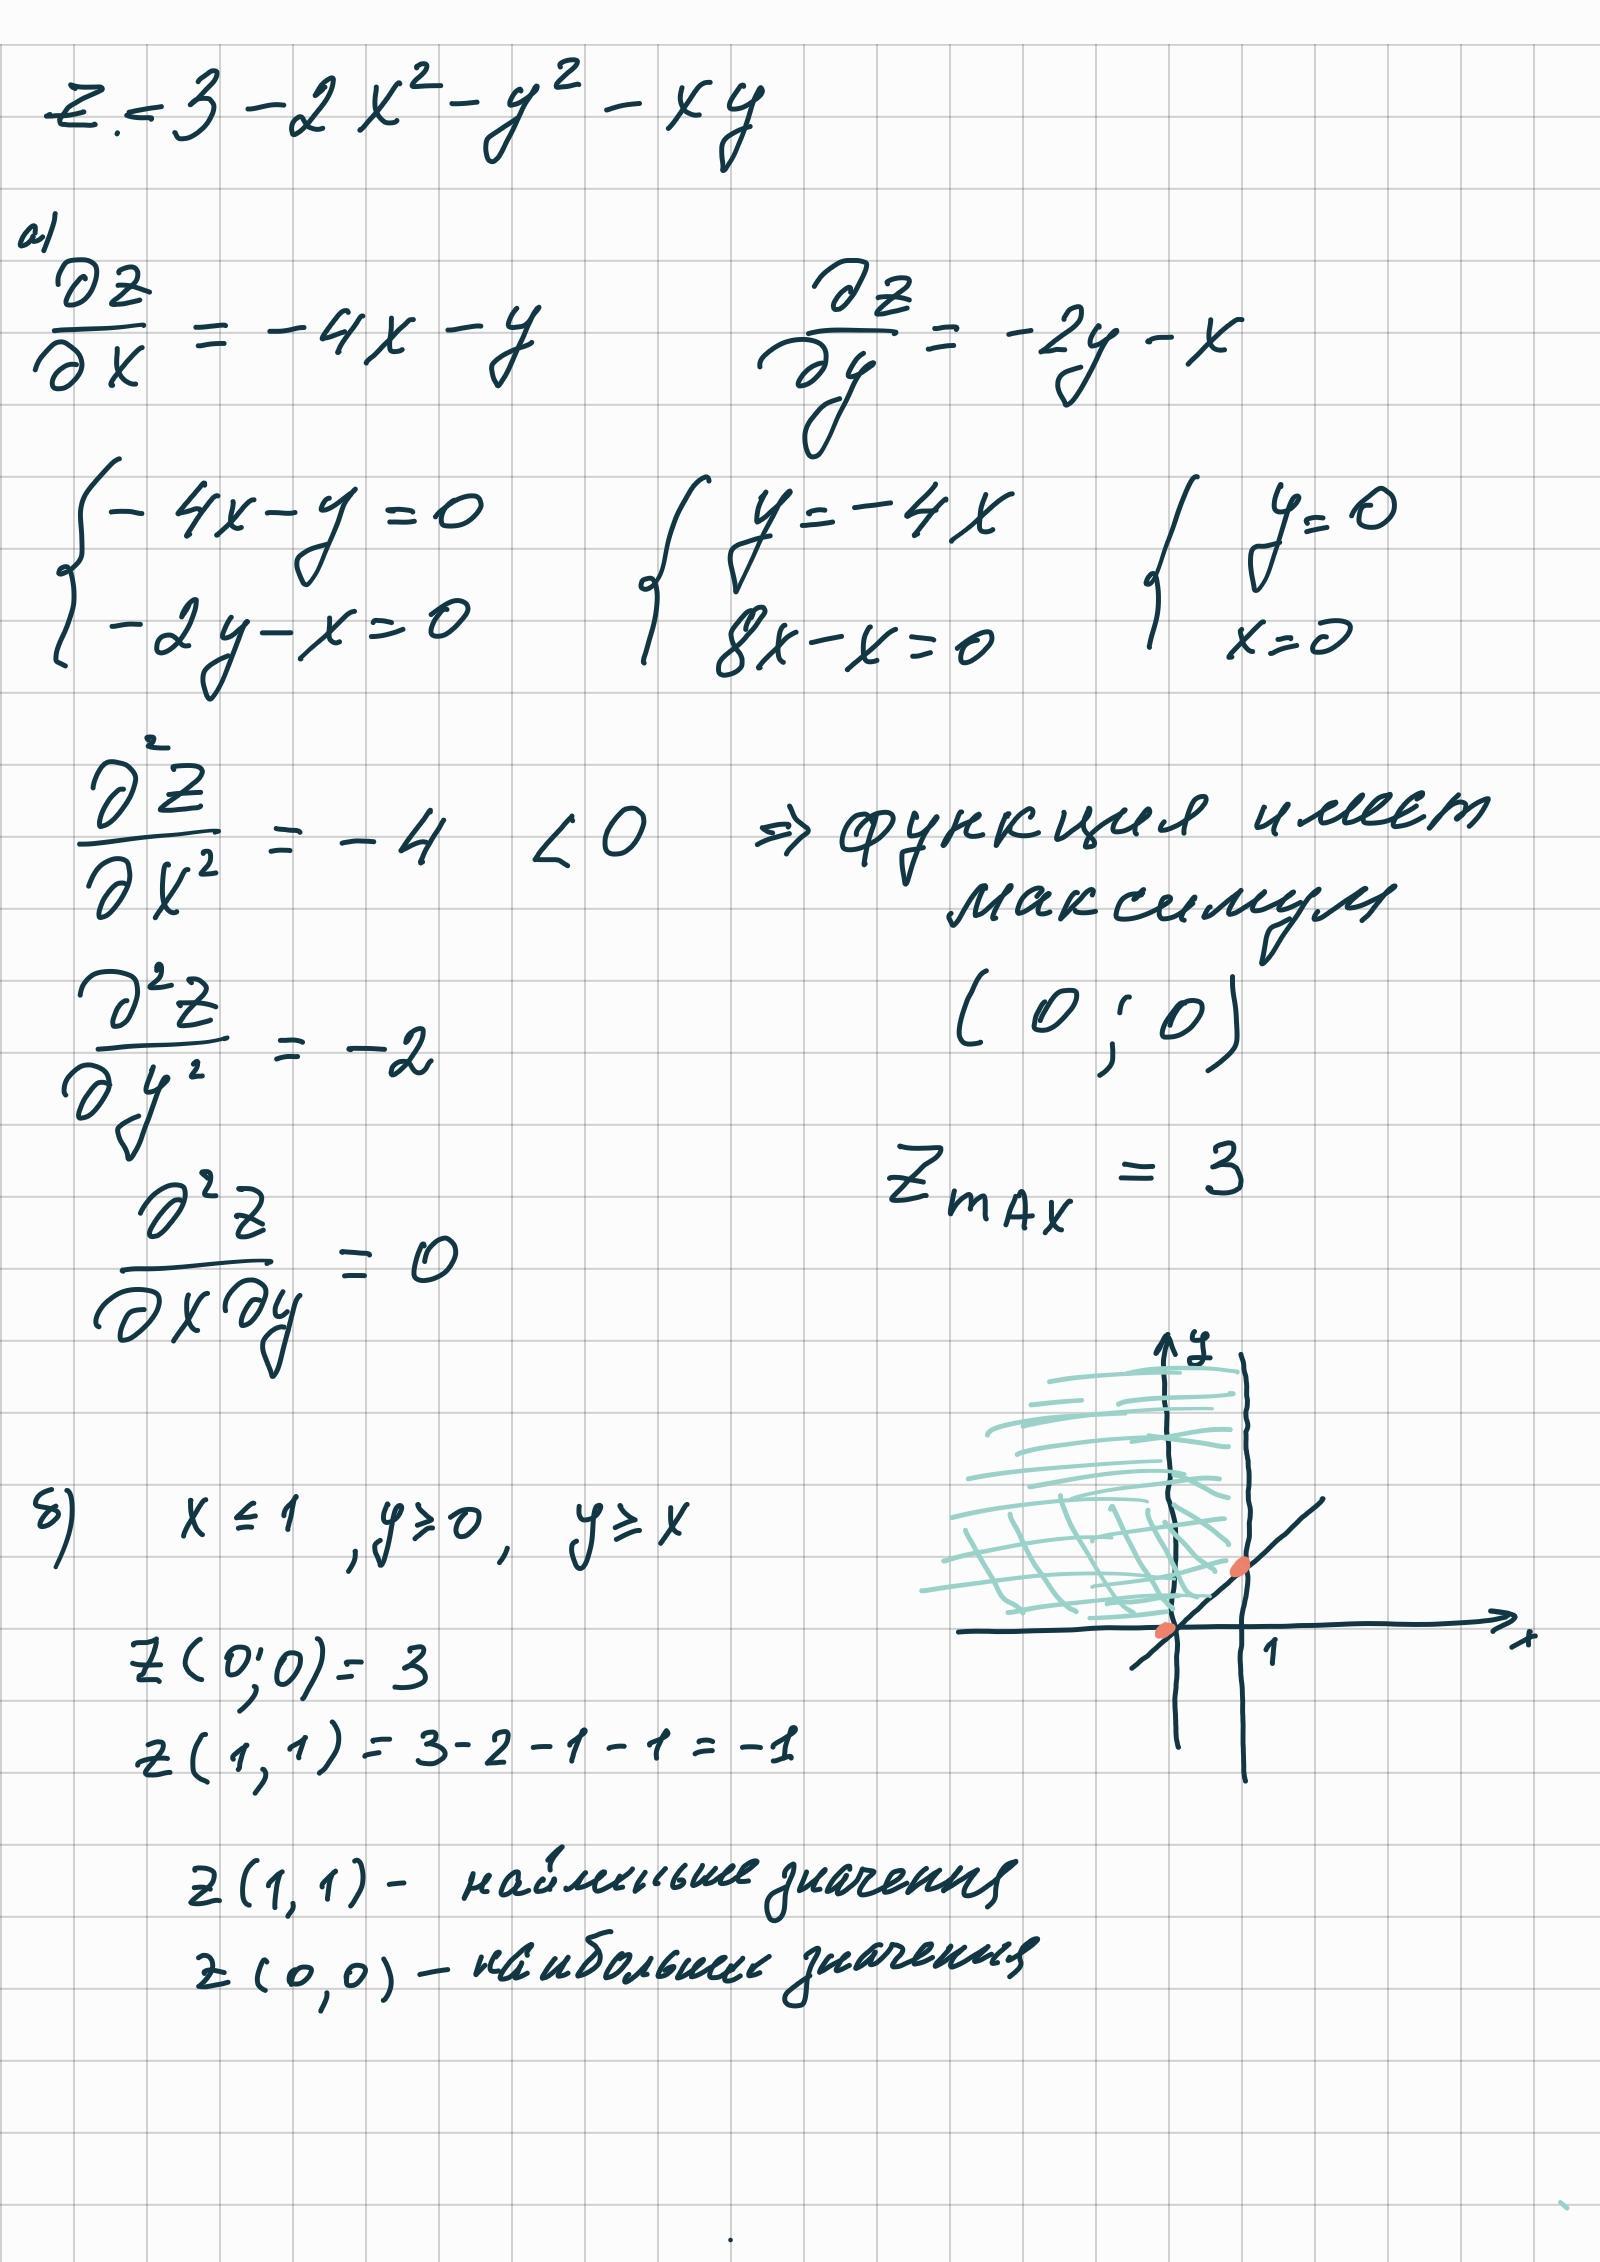 z = 3 - 2x² - y² - xy
а)
∂z/∂x = -4x - y    ∂z/∂y = -2y - x
{ -4x - y = 0    { y = -4x    { y = 0
-2y - x = 0    8x - x = 0    x = 0
∂²z/∂x² = -4 < 0 ⇒ функция имеет
максимум
∂²z/∂y² = -2    (0; 0)
z max = 3
∂²z/∂x∂y = 0
y
б) x ≤ 1, y ≥ 0, y ≥ x
1 x
z(0; 0) = 3
z(1, 1) = 3 - 2 - 1 - 1 = -1
z(1, 1) - наименьше значения
z(0, 0) - наибольшее значения